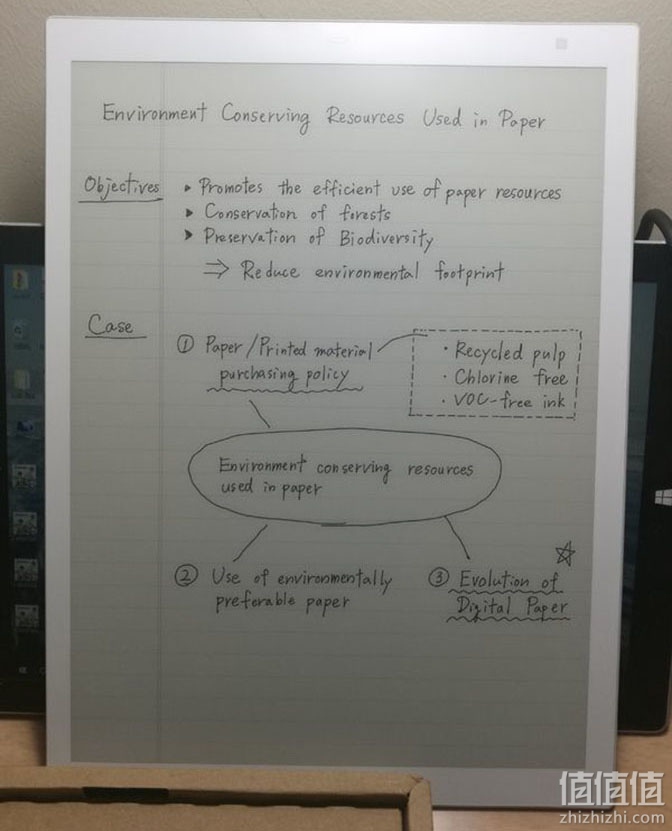 Environment Conserving Resources Used in Paper
Objectives
▸ Promotes the efficient use of paper resources
▸ Conservation of forests
▸ Preservation of Biodiversity
⇒ Reduce environmental footprint
Case
① Paper/Printed material
purchasing policy
・Recycled pulp
・Chlorine free
・VOC-free ink
Environment conserving resources
used in paper
② Use of environmentally
preferable paper
③ Evolution of
Digital Paper
值值值
zhizhizhi.com